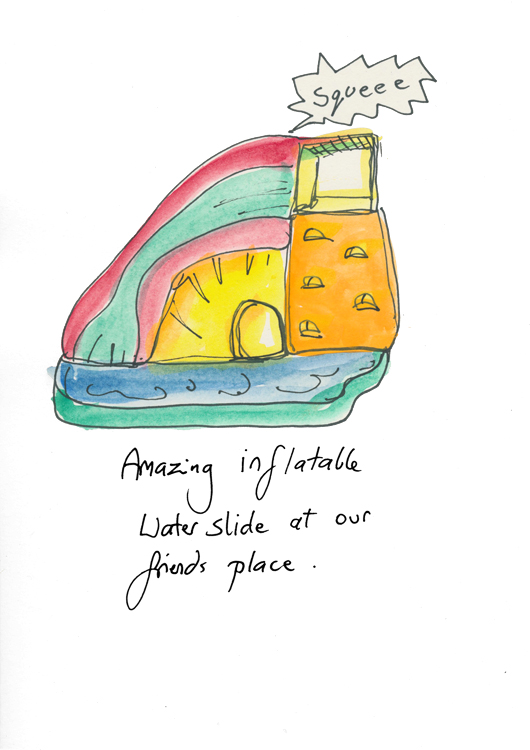 Squeee
Amazing inflatable
Water slide at our
friends place.